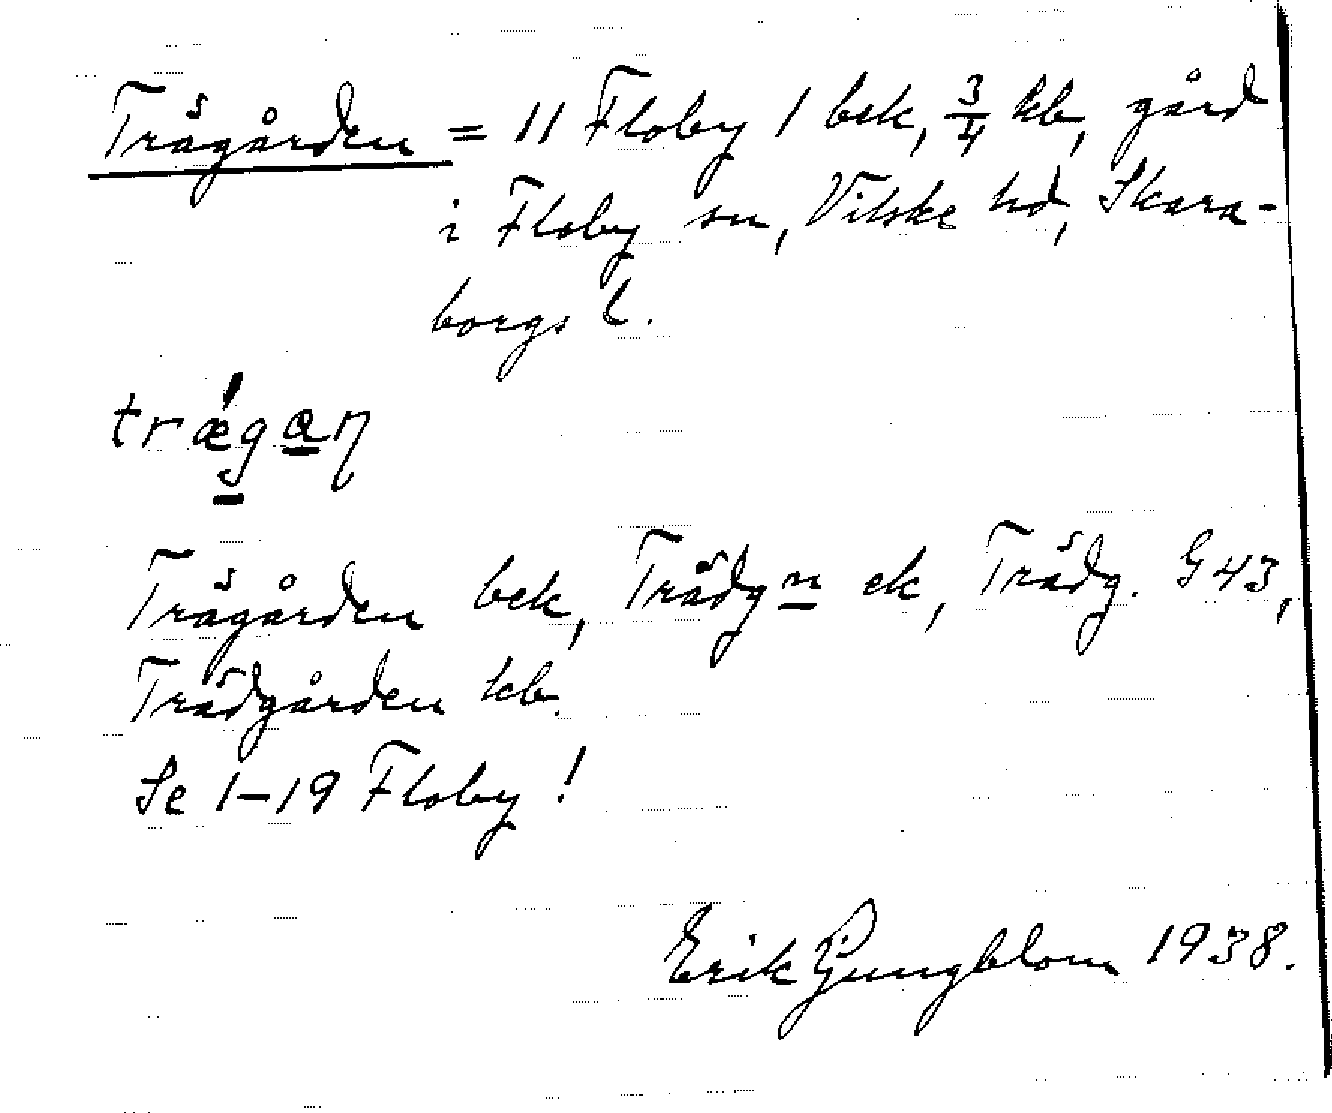 Trägården = 11 Floby 1 bek, 3/4 kb, gård
i Floby sn, Vilske hd, Skara-
borgs l.
Trägården bek, Trädgn ek, Trädg. G 43,
Trädgården kb.
Se 1-19 Floby!
Erik Ljungblom 1938.